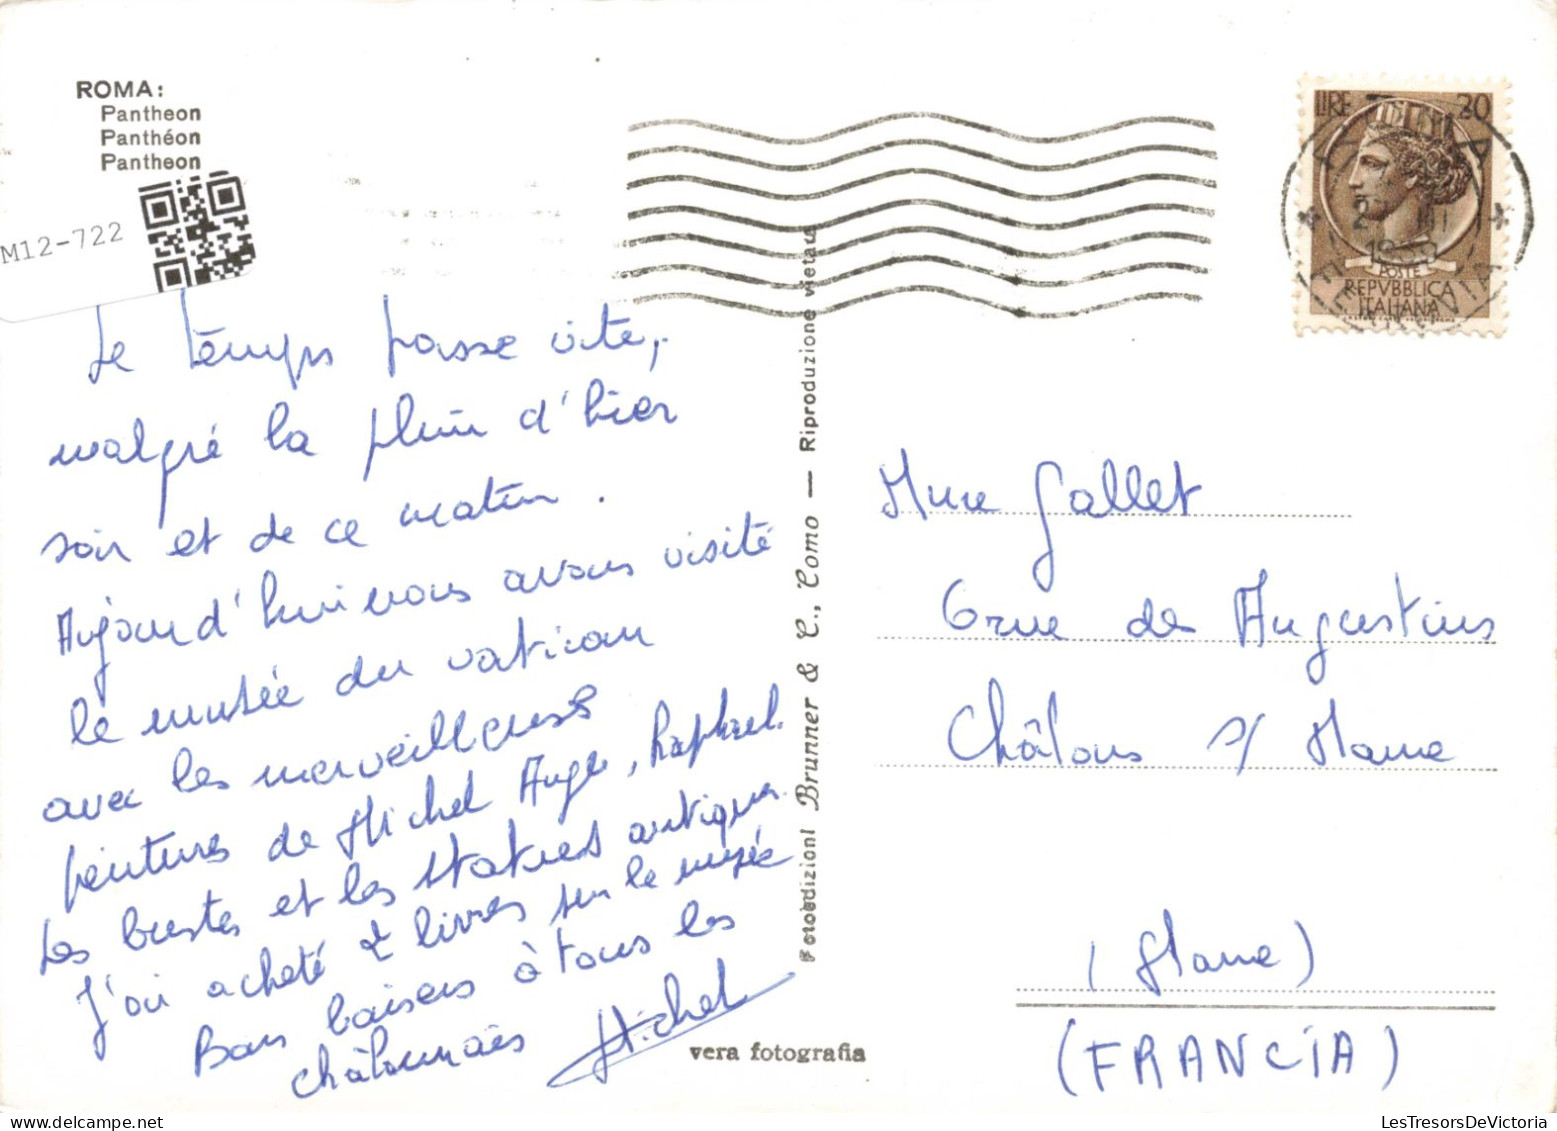 ROMA:
Pantheon
Panthéon
Pantheon
M12-722
LIRE 20
POSTE
REPVBBLICA
ITALIANA
Le temps passe vite,
malgré la pluie d'hier
soir et de ce matin.
Aujourd'hui nous avons visité
le musée du vatican
avec les merveilleuses
peintures de Michel Ange, Raphael.
Les bustes et les statues antiques.
J'ai acheté 2 livres sur le musée
Bons baisers à tous les
châlonnais Michel
Fotoedizioni Brunner & C., Como — Riproduzione vietata
vera fotografia
Mme Gallet
6 rue des Augustins
Châlons s/ Marne
(Marne)
(FRANCIA)
LesTresorsDeVictoria